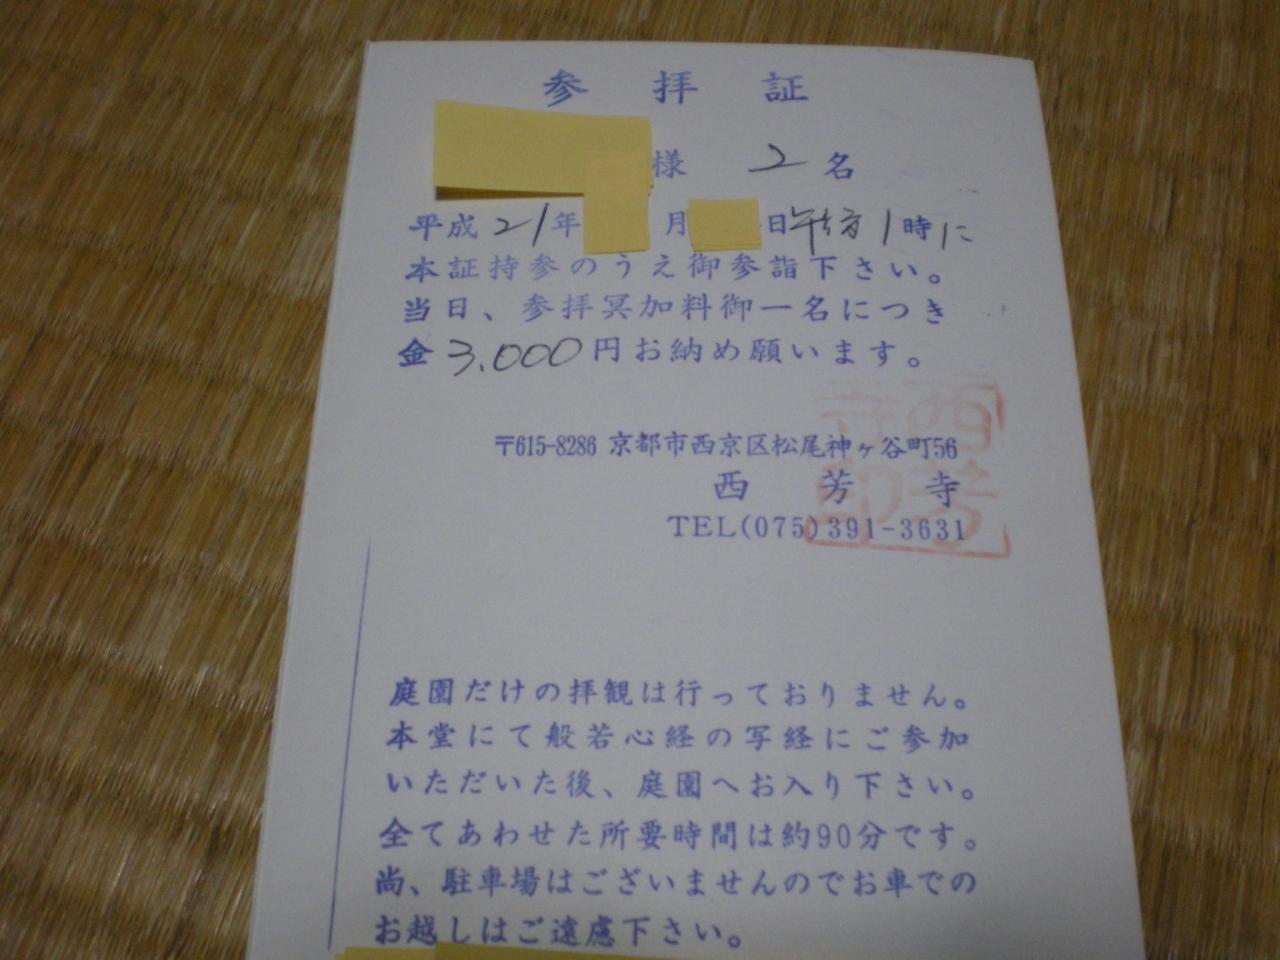 参拝証
様 2名
平成21年 月 日午後1時に
本証持参のうえ御参詣下さい。
当日、参拝冥加料御一名につき
金3,000円お納め願います。
〒615-8286 京都市西京区松尾神ヶ谷町56
西芳寺
TEL(075)391-3631
西芳寺印
庭園だけの拝観は行っておりません。
本堂にて般若心経の写経にご参加
いただいた後、庭園へお入り下さい。
全てあわせた所要時間は約90分です。
尚、駐車場はございませんのでお車での
お越しはご遠慮下さい。